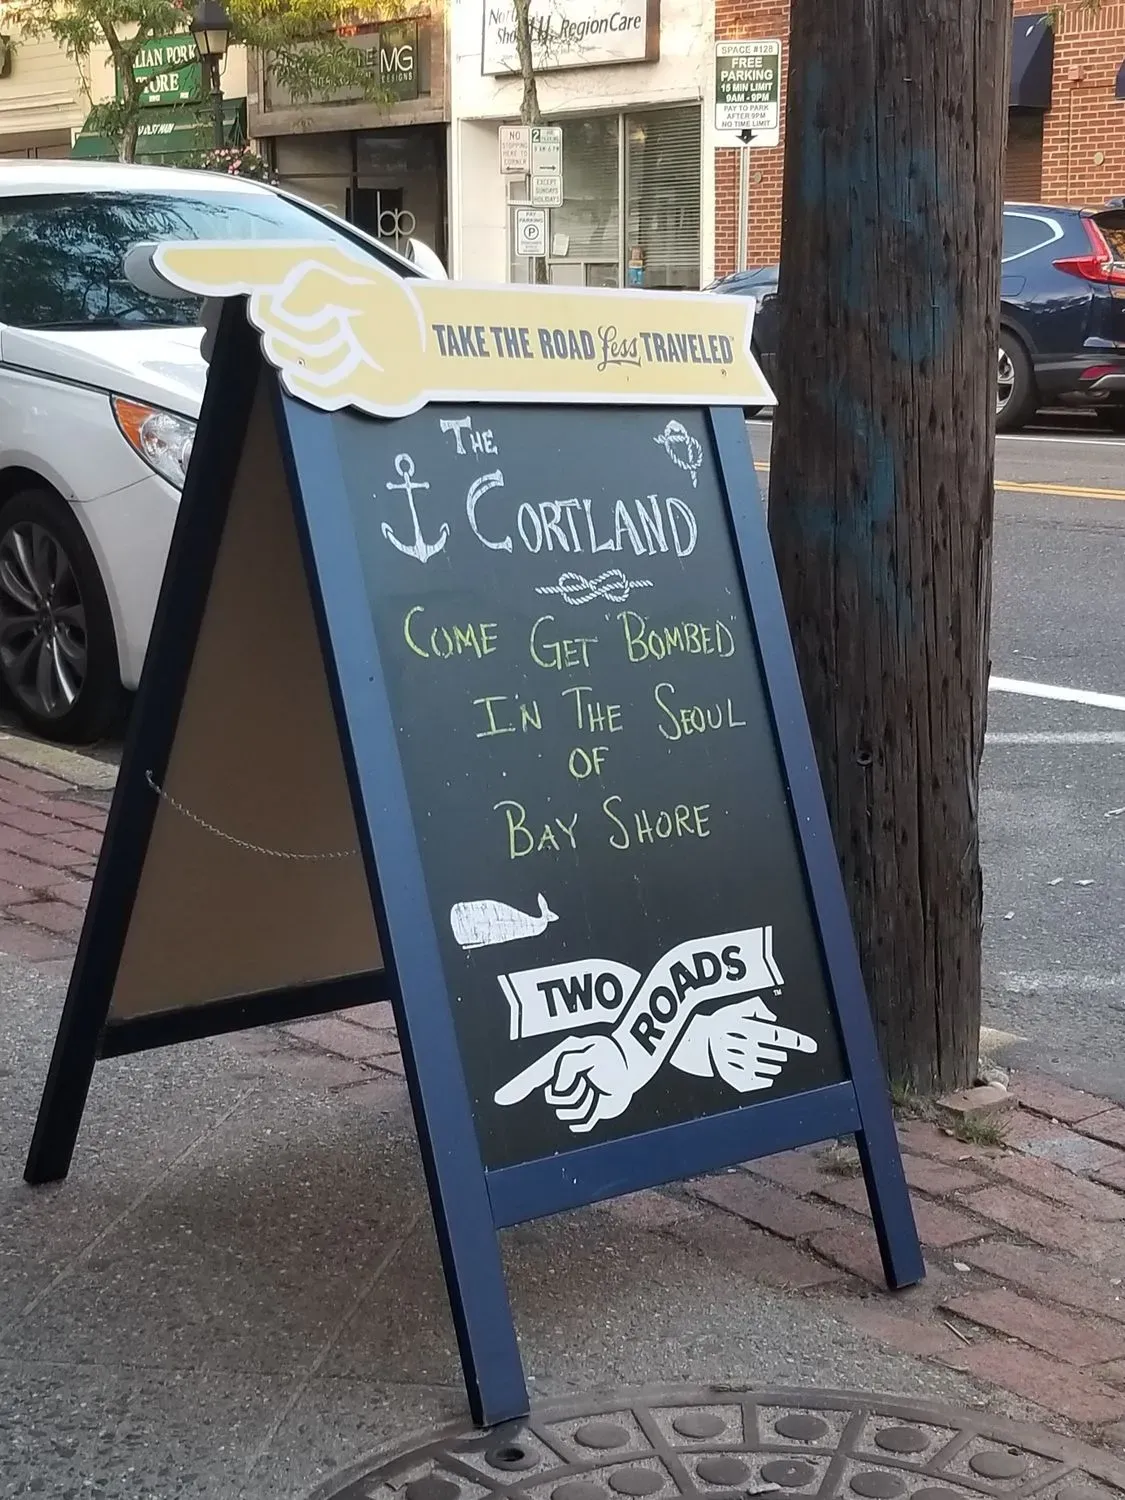 LIAN PORK
ORE
MG
DESIGNS
RegionCare
SPACE #128
FREE
PARKING
15 MIN LIMIT
9AM - 9PM
PAY TO PARK
AFTER 9PM
NO TIME LIMIT
NO
STOPPING
HERE TO
CORNER
2
EXCEPT
SUNDAYS
HOLIDAYS
PAY
PARKING
P
bp
TAKE THE ROAD Less TRAVELED
THE
CORTLAND
COME GET "BOMBED"
IN THE SEOUL
OF
BAY SHORE
TWO ROADS